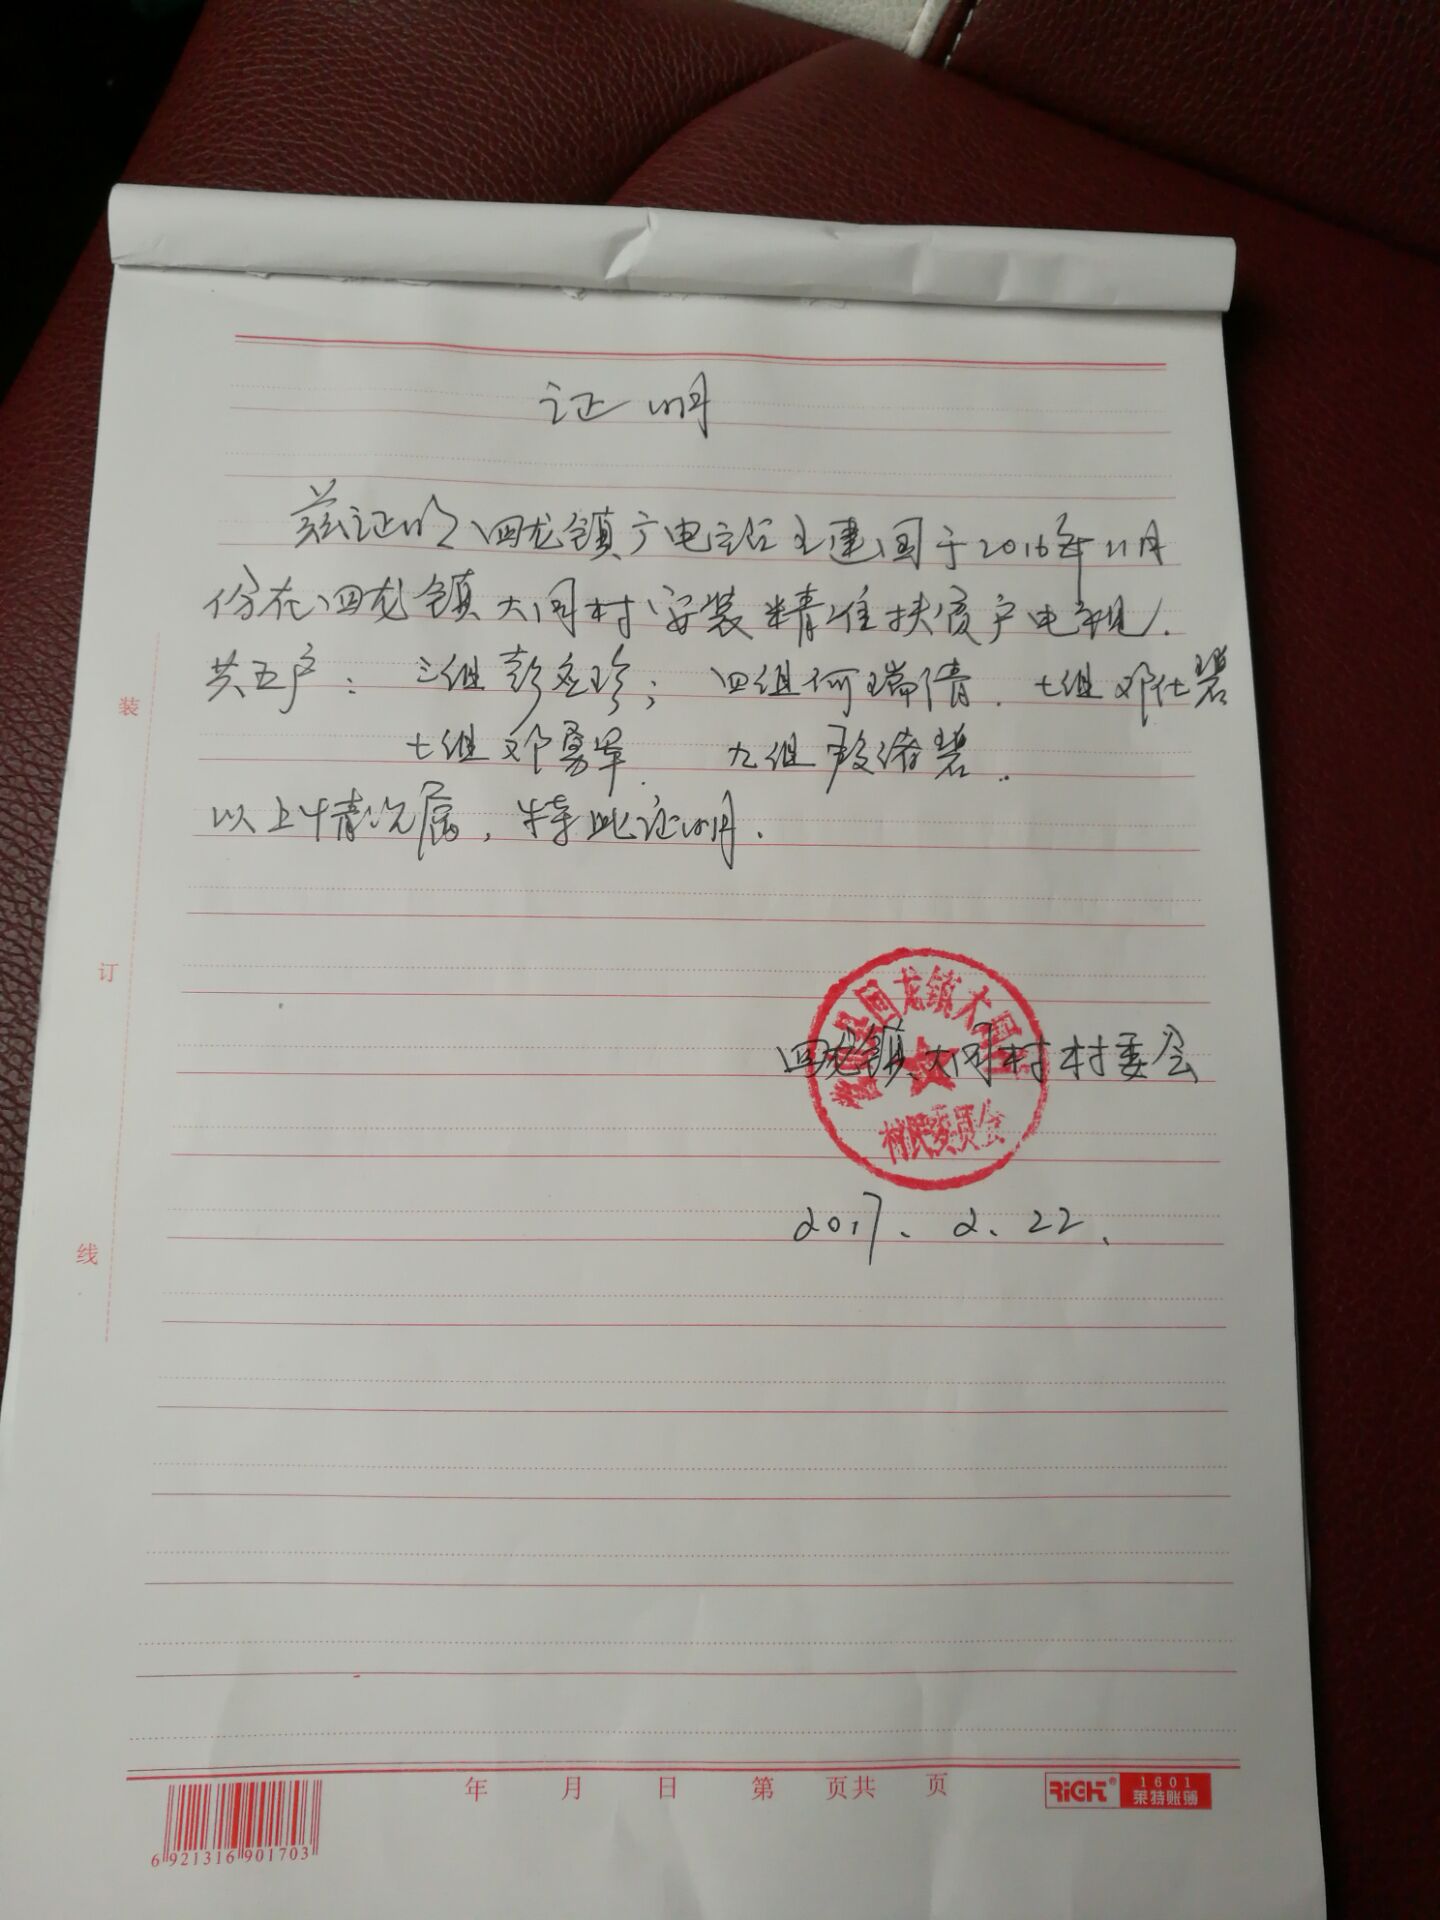 证明
兹证明回龙镇广电站王建国于2016年11月
份在回龙镇大同村安装精准扶贫户电视.
共五户: 三组彭冬珍; 四组何瑞倩. 七组邓仕碧
七组邓勇军. 九组段绪碧.
以上情况属, 特此证明.
回龙镇大
村民委员会
回龙镇大同村村委会
2017.2.22.
装
订
线
年 月 日 第 页共 页
RiGHT® 1601
莱特账簿
6 921316 901703